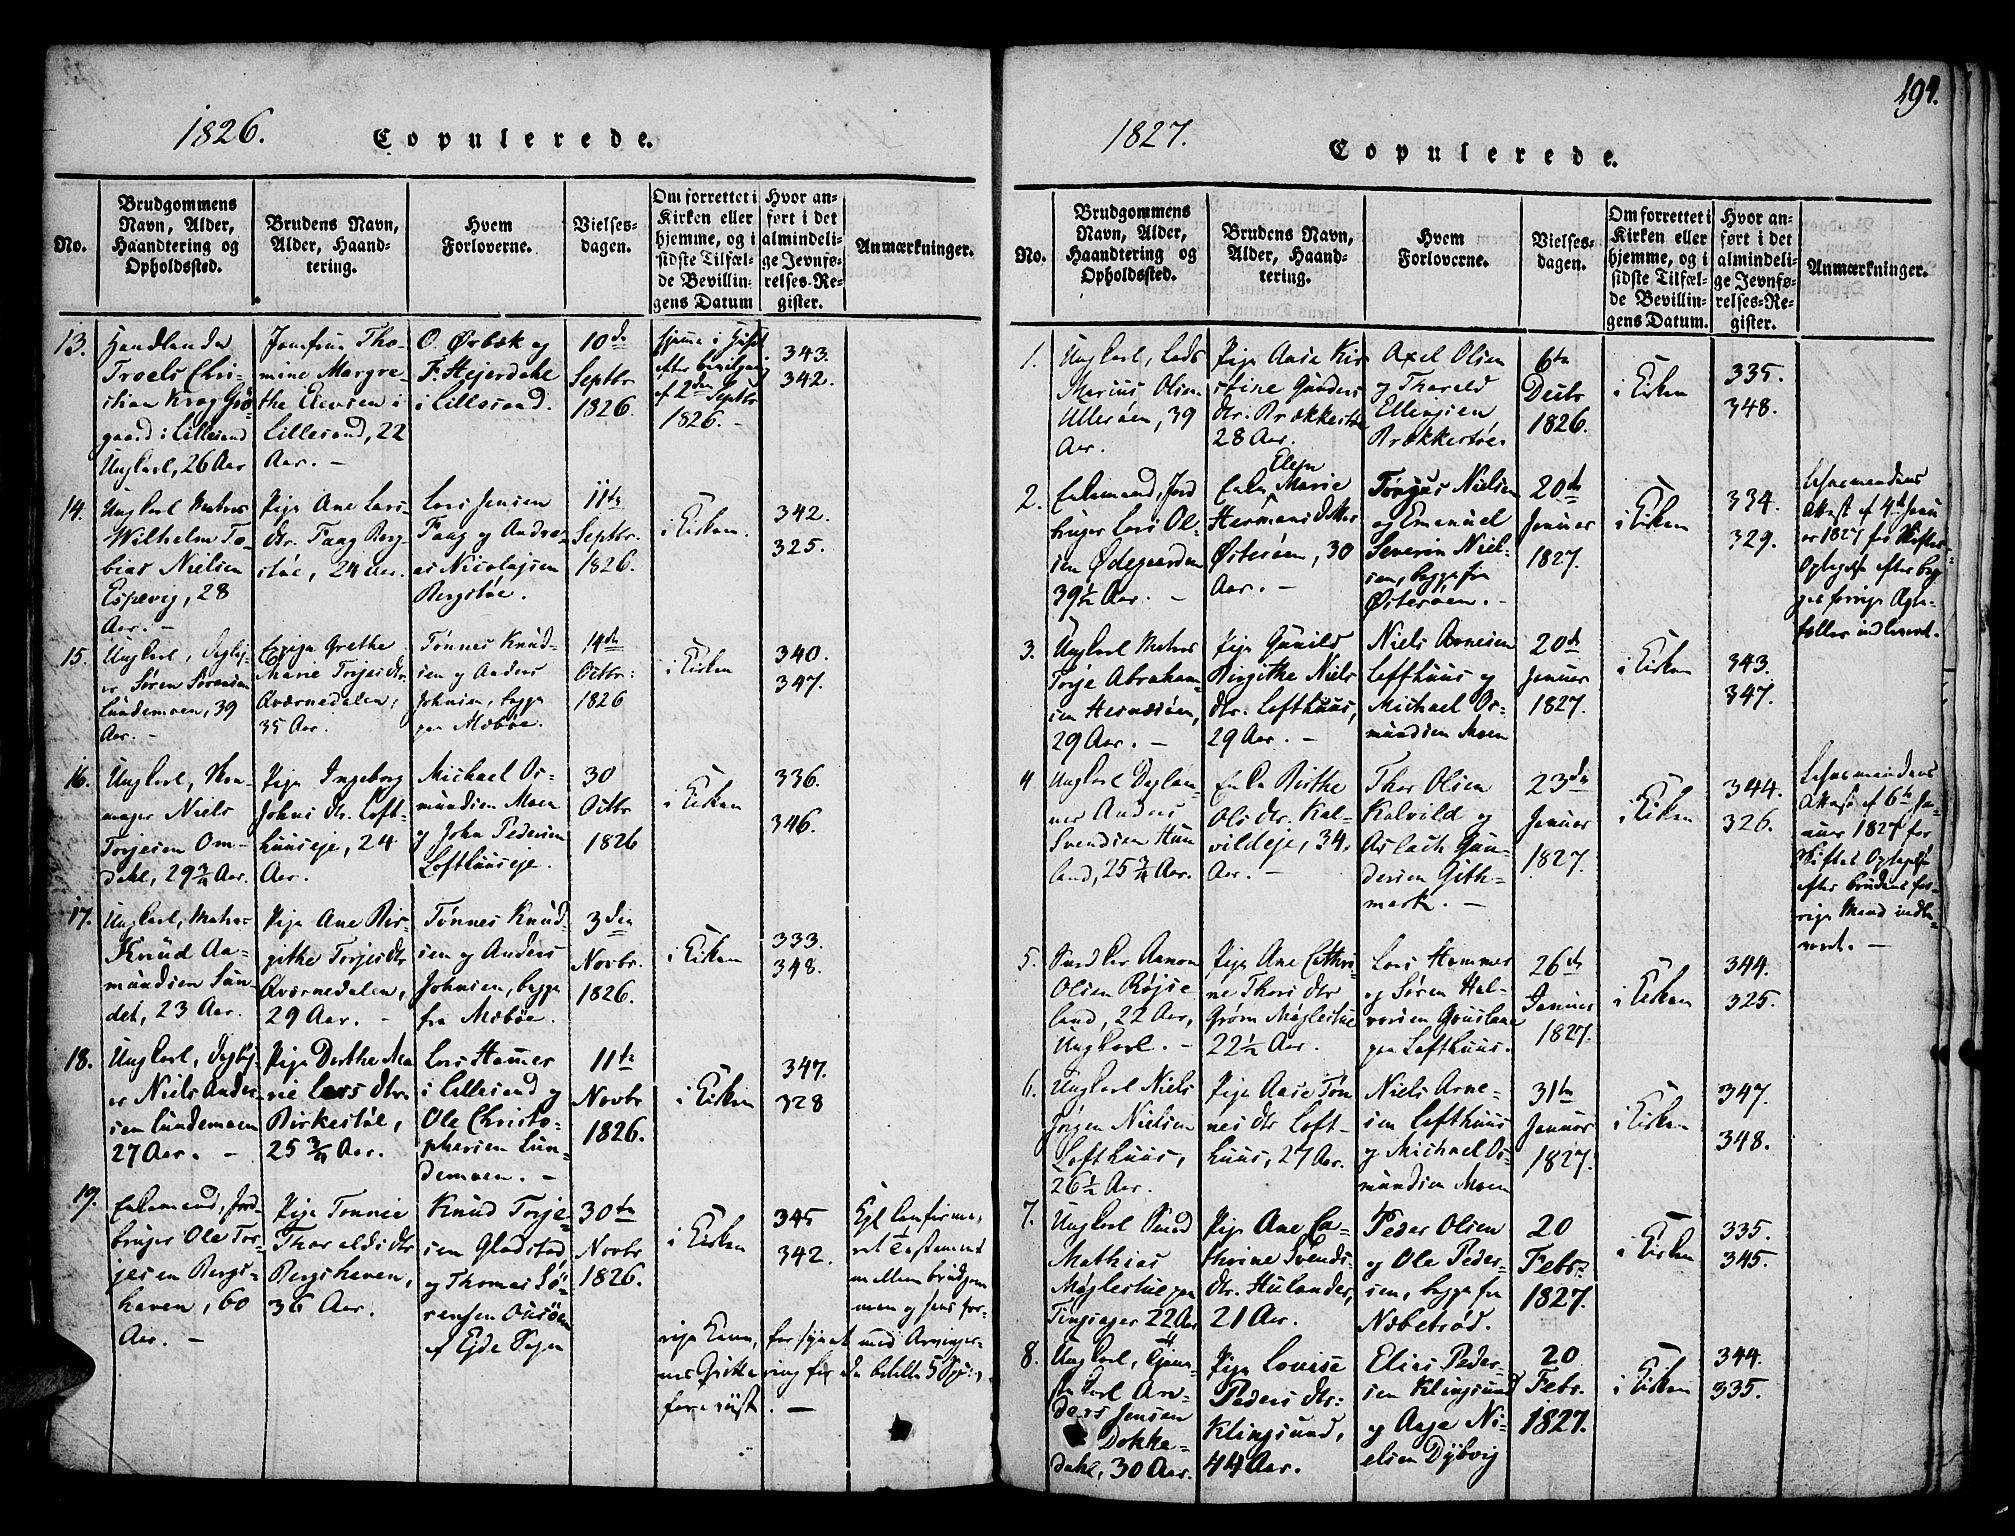 194.
1826.
Copulerede.
No.
Brudgommens
Navn, Alder,
Haandtering og
Opholdssted.
Brudens Navn,
Alder, Haand-
tering.
Hvem
Forloverne.
Vielses-
dagen.
Om forrettet i
Kirken eller
hjemme, og i
sidste Tilfæl-
de Bevillin-
gens Datum
Hvor an-
ført i det
almindeli-
ge Jevnfø-
relses-Re-
gister.
Anmærkninger.
13.
Handlende
Troels Chri-
stian Krag Grø-
gaard i Lillesand
Ungkarl, 26 Aar
Jomfrue Tho-
mine Margre-
the Elevsen i
Lillesand, 22
Aar. -
O. Ørbæk og
F. Hejerdahl
i Lillesand.
10de
Septbr
1826.
hjemme i Huset
efter bevilgning
af 2den Septbr
1826. -
343.
342.
14.
Ungkarl Matros
Wilhelm To-
bias Nielsen
Espevig, 28
Aar. -
Pige Ane Lars-
dtr. Faag Berg-
støe, 24 Aar.
Lars Jensen
Faag og Andre-
as Nicolajsen
Bergstøe.
11te
Septbr.
1826.
i Kirken.
342.
325.
15.
Ungkarl,
Søren Sørensen
Lundemoen, 39
Aar. -
Pige Grethe
Marie Torjesdtr.
Aværnedalen,
35 Aar.
Tønnes Knud-
sen og Anders
Johnsen, begge
paa Mæbøe.
14de
Octbr:
1826
i Kirken
340.
347.
16.
Ungkarl,
Niels
Torjesen Om-
dahl, 29 3/4 Aar.
Pige Ingeborg
Johnsdtr. Loft-
huuseje, 24
Aar.
Michael Os-
mundsen Moen
og John Pedersen
Lofthuuseje.
30
Octbr
1826
i Kirken
336.
346.
17.
Ungkarl, Matros
Knud Aa-
mundsen Sun-
det, 23 Aar.
Pige Ane Bir-
githe Torjesdtr
Aværnedalen,
29 Aar. -
Tønnes Knud-
sen og Anders
Johnsen, begge
fra Mæbøe.
3die
Novbr.
1826.
i Kirken
333.
348.
18.
Ungkarl,
Niels Ander-
sen Lundemoen
27 Aar. -
Pige Dorthe Ma-
rie Larsdtr.
Birkestøl,
25 3/4 Aar.
Lars Hammer
i Lillesand og
Ole Christo-
phersen Lun-
demoen. -
11te
Novbr
1826.
i Kirken
347.
328
19.
Enkemand, Jord-
bruger Ole Tor-
jesen Bergs-
haven, 60
Aar. -
Pige Tonnie
Thoraldsdtr
Bergshaven,
36 Aar.
Knud Torje-
sen Gladstad
og Thomas Sø-
rensen
af Ejde Sogn
30te
Novbr
1826.
i Kirken
345
342.
1827.
Copulerede.
No.
Brudgommens
Navn, Alder,
Haandtering og
Opholdssted.
Brudens Navn,
Alder, Haand-
tering.
Hvem
Forloverne.
Vielses-
dagen.
Om forrettet i
Kirken eller
hjemme, og i
sidste Tilfæl-
de Bevillin-
gens Datum.
Hvor an-
ført i det
almindeli-
ge Jevnfø-
relses-Re-
gister.
Anmærkninger.
1.
Ungkarl, Lods
Marius Olsen
Ulleröen, 39
Aar.
Pige Anne Kir-
stine Gunders
dtr. Brækkestøe
28 Aar.
Axel Olsen
og Tharald
Ellingsen
Brækkestøe.
6te
Decbr
1826.
i Kirken
335.
348.
2.
Enkemand, Jord
bruger Lars Ol-
sen Ødegaarden
39 1/2 Aar. -
Elen
Enke Marie
Hermansdtr
Østerøen, 30
Aar. -
Tørjus Nielsen
og Emanuel
Severin Niel-
sen, begge fra
Østerøen. -
20de
Januar
1827.
i Kirken
334.
329.
3.
Ungkarl Matros
Torje Abraham-
sen Hesnæsøen,
29 Aar. -
Pige Gunild
Birgithe Niels
dtr. Lofthuus,
29 Aar. -
Niels Arnesen
Lofthuus og
Michael Os-
mundsen Moen
20de
Januar
1827.
i Kirken
343.
347.
4
Ungkarl
Anders
Svendsen Huu
land, 25 3/4 Aar.
Enke Birthe
Olsdtr. Kal-
vildeje, 34.
Aar. -
Thor Olsen
Kalvild og
Aslach Gun-
dersen Gith-
mark. -
23de
Januar
1827.
i Kirken
344.
326.
5.
Aanon
Olsen Røjse
land, 22 Aar,
Ungkarl. -
Pige Ane Cathri-
ne Thorsdtr
Grøm Møglestue
22 1/2 Aar.
Lars Hammer
og Søren Hal-
vorsen
paa Lofthuus.
26de
Januar
1827.
i Kirken
344.
325.
6.
Ungkarl Niels
Jørgen Nielsen
Lofthuus,
26 1/2 Aar.
Pige Aase Tøn
nesdtr Loft-
huus, 27 Aar.
Niels Arne-
sen Lofthuus
og Michael Os-
mundsen Moen
31te
Januar
1827.
i Kirken
347.
348.
7.
Ungkarl Knud
Mathias
Møglestue paa
Tingsager 22 Aar
Pige Ane Ca-
thrine Svends-
dtr. Hulandee,
21 Aar.
Peder Olsen
og Ole Peder-
sen, begge fra
Næbetrød.
20
Febr.
1827.
i Kirken
335.
345.
8.
Ungkarl, Tjene-
stekarl An-
ders Jensen
Dokke-
dahl, 30 Aar.
Pige Lovise
Pedersdtr:
Klingsund,
44 Aar.
Elias Peder-
sen Klingsund
og Aage Ni-
elsen Dÿbvig
20
Febr.
1827.
i Kirken
344.
335.